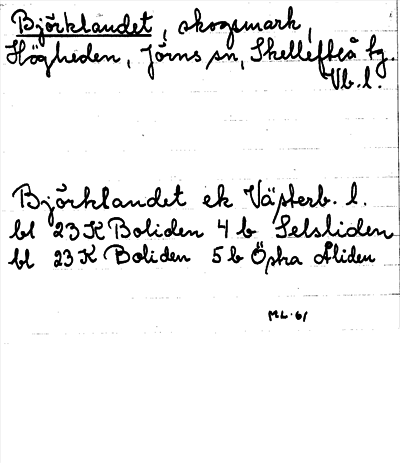 Björklandet, skogsmark,
Högheden, Jörns sn, Skellefteå tg.
Vb. l.
Björklandet ek Västerb. l.
bl 23 K Boliden 4 b Selsliden
bl 23 K Boliden 5 b Östra Åliden
ML-61